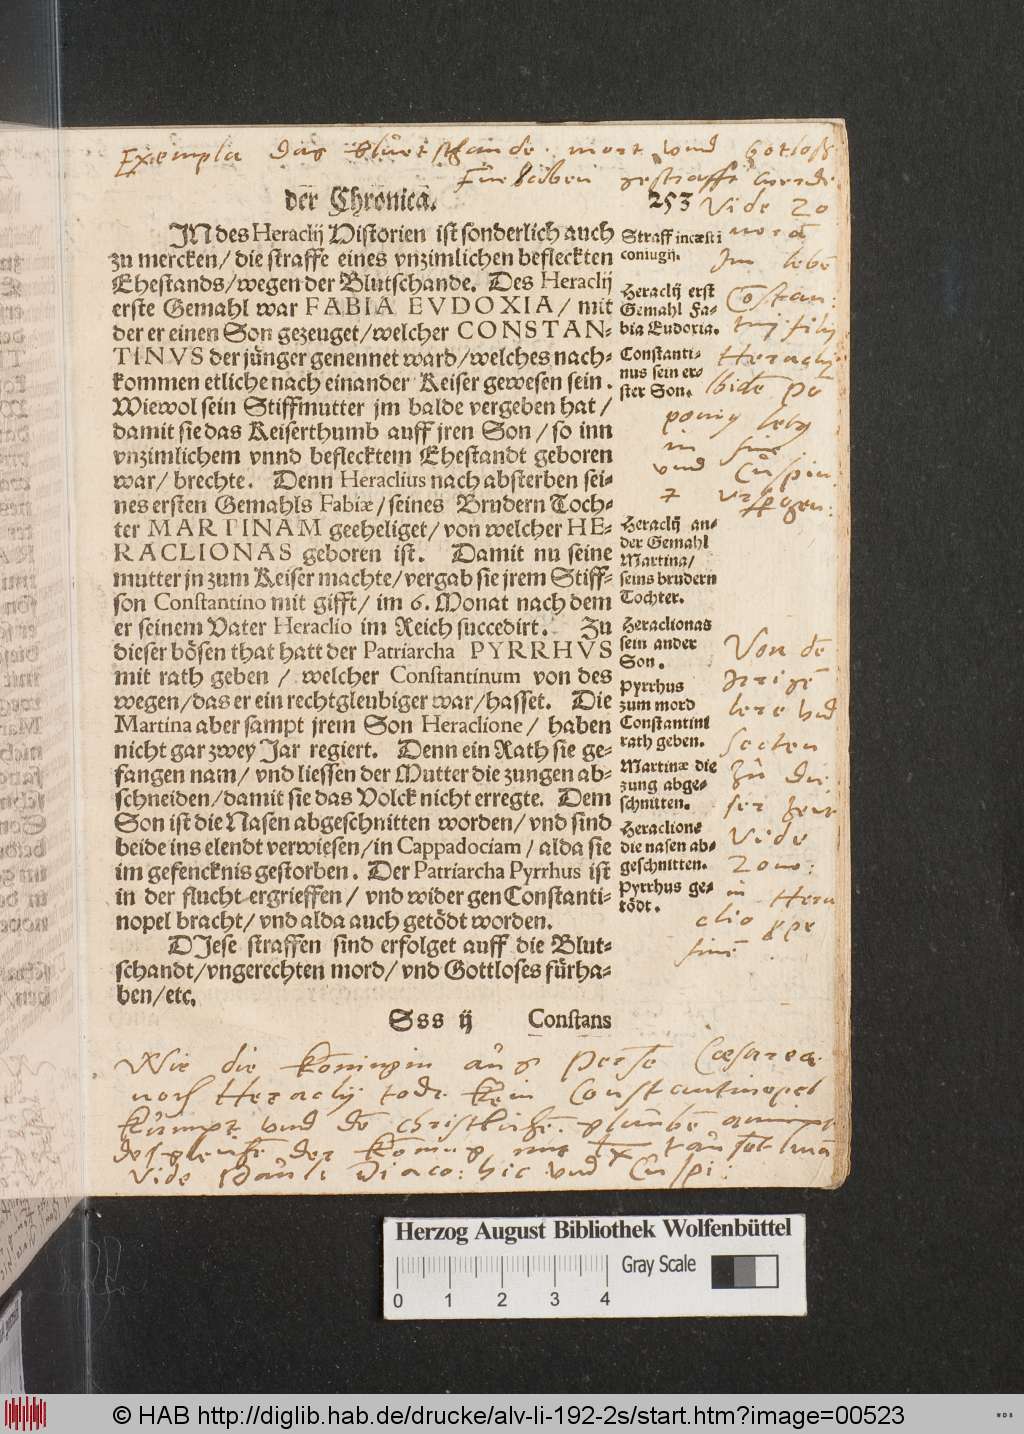 Exempla das Bluetschande. mort vnd Gotloss
Fürhaben gestrafft werdē
der Chronica. 253
JN des Heraclij Historien ist sonderlich auch
zu mercken/ die straffe eines vnzimlichen befleckten
Ehestands/ wegen der Blutschande. Des Heraclij
erste Gemahl war FABIA EVDOXIA/ mit
der er einen Son gezeuget/ welcher CONSTAN-
TINVS der jünger genennet ward/ welches nach-
kommen etliche nach einander Keiser gewesen sein.
Wiewol sein Stiffmutter jm balde vergeben hat/
damit sie das Keiserthumb auff jren Son/ so inn
vnzimlichem vnnd beflecktem Ehestandt geboren
war/ brechte. Denn Heraclius nach absterben sei-
nes ersten Gemahls Fabiæ/ seines Brudern Toch-
ter MARTINAM geeheliget/ von welcher HE-
RACLIONAS geboren ist. Damit nu seine
mutter jn zum Keiser machte/ vergab sie jrem Stiff-
son Constantino mit gifft/ im 6. Monat nach dem
er seinem Vater Heraclio im Reich succedirt. Zu
dieser bösen that hatt der Patriarcha PYRRHVS
mit rath geben / welcher Constantinum von des
wegen/ das er ein rechtgleubiger war/ hasset. Die
Martina aber sampt jrem Son Heraclione/ haben
nicht gar zwey Jar regiert. Denn ein Rath sie ge-
fangen nam/ vnd liessen der Mutter die zungen ab-
schneiden/ damit sie das Volck nicht erregte. Dem
Son ist die Nasen abgeschnitten worden/ vnd sind
beide ins elendt verwiesen/ in Cappadociam/ alda sie
im gefencknis gestorben. Der Patriarcha Pyrrhus ist
in der flucht ergrieffen/ vnd wider gen Constanti-
nopel bracht/ vnd alda auch getödt worden.
DJese straffen sind erfolget auff die Blut-
schandt/ vngerechten mord/ vnd Gottloses fürha-
ben/ etc.
Sss ij Constans
Straff incæsti
coniugij.
Heraclij erst
Gemahl Fa-
bia Eudoxia.
Constanti-
nus sein er-
ster Son.
Heraclij an-
der Gemahl
Martina/
seins brudern
Tochter.
Heraclionas
sein ander
Son.
Pyrrhus
zum mord
Constantini
rath geben.
Martinæ die
zung abge-
schnitten.
Heraclione
die nasen ab-
geschnitten.
Pyrrhus ge-
tödt.
Vide Zo
norā
Im lebē
Constan:
tinj filij
Heraclij
in fine
vnd Cuspin:
Von dē
lere vnd
secten
zu die:
ser zeit
Vide
Zono:
in Hera
clio
finē
Wie die Königin aus Perse Cæsarea
noch Heraclij tode kein Constantinopel
kumpt vnd dē christlichē glaubē
desgleichē der König
Vide Pauli Diaco: hic vnd Cuspi:
Herzog August Bibliothek Wolfenbüttel
Gray Scale
0 1 2 3 4
© HAB http://diglib.hab.de/drucke/alv-li-192-2s/start.htm?image=00523